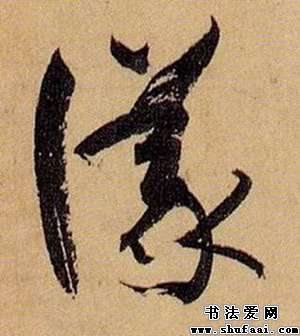 隊
书法爱网
www.shufaai.com